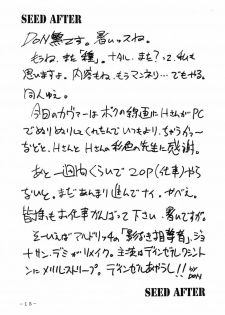 SEED AFTER
DON繁です。暑いッスね。
もうね、また「種」。ナヌル、また?って、私も
思いますよ。内容もね、もうマンネリ…でもやる。
同人ゆえ。
今回のカヴァーはボクの線画にHさんがPC
でぬりぬりしてくれたんでいつもより、ちゃうがぅ〜
などと、HさんとHさんの彩色の先生に感謝。
あと一週間くらいで20P(仕事)やら
ないと。まだあんまり進んでナイ。がべぇ。
皆様もお仕事がんばって下さい、暑いですが。
そーいえばアルドリッチの「影なき狙撃者」、ジョ
ナサン・デミがリメイク。主演はデインゼルワシント
ンにメリルストリープ。デインゼルあやうし!!
by DON
SEED AFTER
-13-